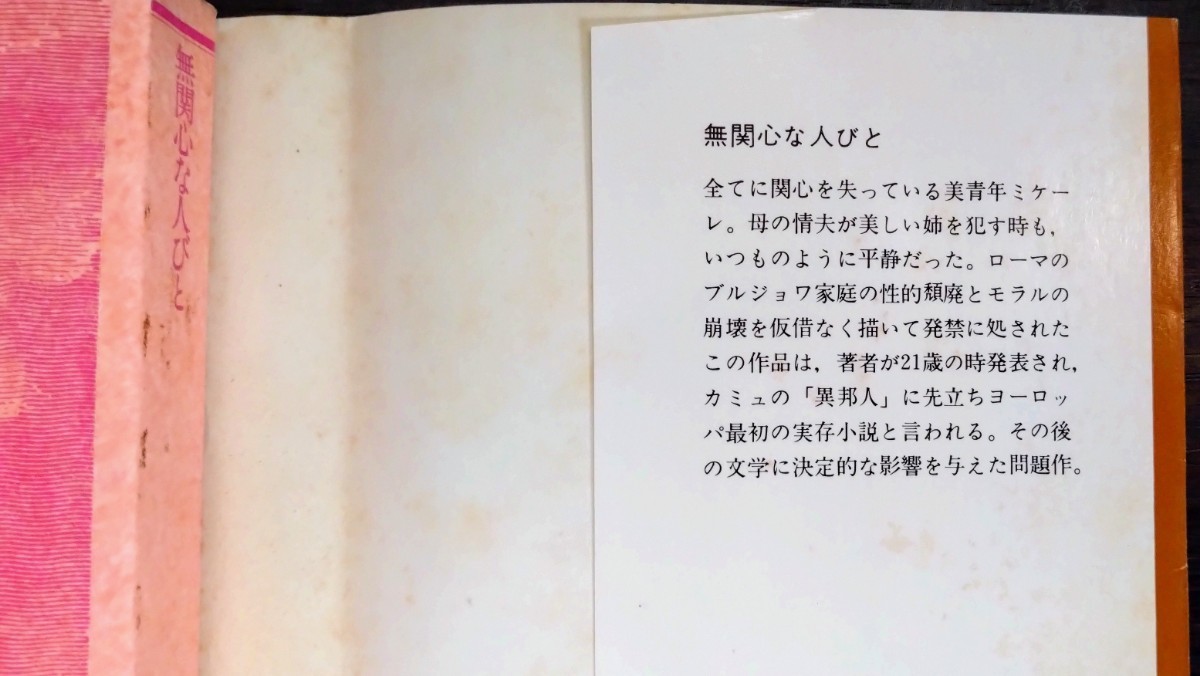 無関心な人びと
無関心な人びと
全てに関心を失っている美青年ミケー
レ。母の情夫が美しい姉を犯す時も，
いつものように平静だった。ローマの
ブルジョワ家庭の性的頽廃とモラルの
崩壊を仮借なく描いて発禁に処された
この作品は，著者が21歳の時発表され，
カミュの「異邦人」に先立ちヨーロッ
パ最初の実存小説と言われる。その後
の文学に決定的な影響を与えた問題作。